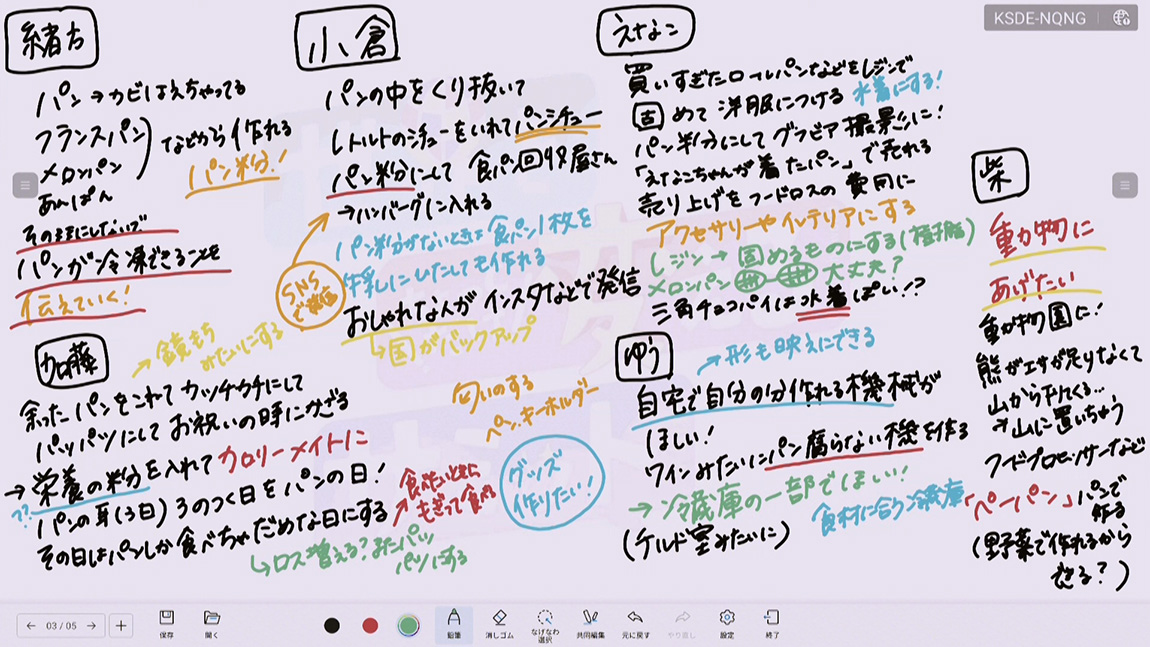 KSDE-NQNG
緒方
パン→カビはえちゃってる
フランスパン
メロンパン
あんぱん
などから作れる
パン粉!
そのままにしないで
パンが冷凍できることを
伝えていく!
小倉
パンの中をくり抜いて
レトルトのシチューをいれてパンシチュー
パン粉にして 食パン回収屋さん
→ハンバーグに入れる
パン粉がないときは食パン1枚を
牛乳にひたしても作れる
SNSで発信
おしゃれな人がインスタなどで発信
↳国がバックアップ
えなこ
買いすぎたロールパンなどをレジンで
固めて 洋服につける 水着にする!
パン半分にしてグラビア撮影に!
「えなこちゃんが着たパン」で売れる
売り上げをフードロスの費用に
アクセサリーやインテリアにする
レジン→固めるものにする(樹脂)
メロンパン 大丈夫?
三角チョコパイは水着っぽい!?
柴
動物に
あげたい
動物園に!
熊がエサが足りなくて
山から下りてくる…
→山に置いちゃう
フードプロセッサーなど
「ペーパン」パンで作る
(野菜で作れるから
できる?)
加藤
→鏡もち
みたいにする
余ったパンをこねてカッチカチにして
パッパツにしてお祝いの時にかざる
→栄養の粉を入れてカロリーメイトに
??
パンの耳(3日)3のつく日をパンの日!
その日はパンしか食べちゃだめな日にする
↳ロス増える?またパッ
パツにする
食べたいときに
もぎって食べる
匂いのする
ペン、キーホルダー
グッズ
作りたい!
ゆう
→形も映えにできる
自宅で自分の分作れる機械が
ほしい!
ワインみたいにパン腐らない機を作る
→冷蔵庫の一部でほしい!
(チルド室みたいに)
食材に合う冷蔵庫
03 / 05
保存
開く
鉛筆
消しゴム
なげなわ
選択
共同編集
元に戻す
やり直し
設定
終了